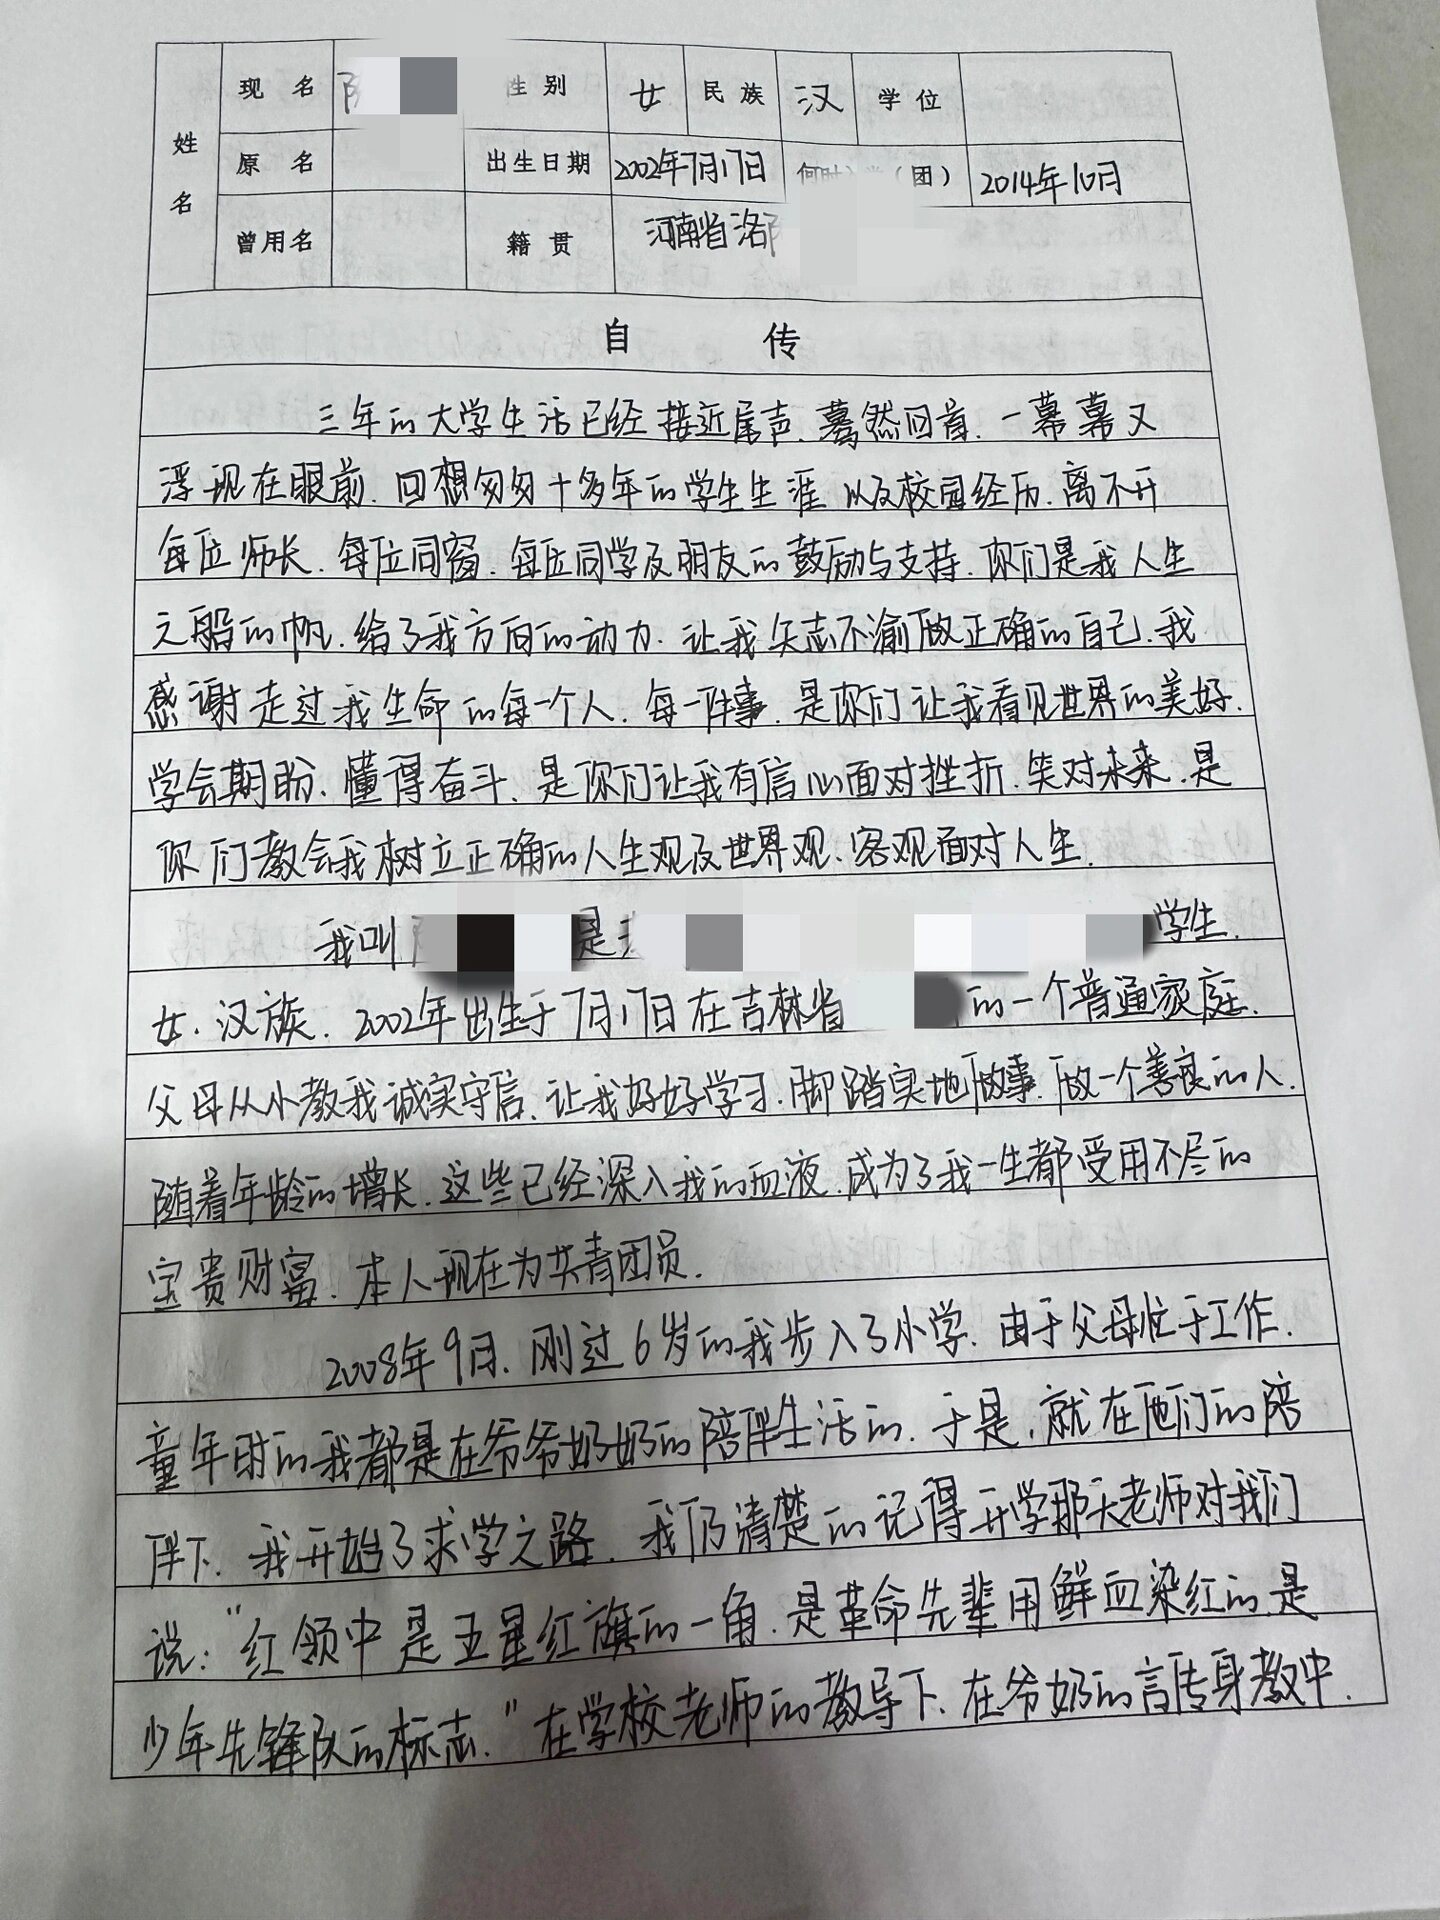 姓名 现名 性别 女 民族 汉 学位
原名 出生日期 2002年7月17日 何时 (团) 2014年10月
曾用名 籍贯 河南省洛
自 传
三年的大学生活已经接近尾声.蓦然回首.一幕幕又
浮现在眼前.回想匆匆十多年的学生生涯以及校园经历.离不开
每位师长.每位同窗.每位同学及朋友的鼓励与支持.你们是我人生
之船的帆.给了我方向的动力.让我矢志不渝做正确的自己.我
感谢走过我生命的每一个人.每一件事.是你们让我看见世界的美好.
学会期盼.懂得奋斗.是你们让我有信心面对挫折.笑对未来.是
你们教会我树立正确的人生观及世界观.客观面对人生.
我叫 是 学生.
女.汉族.2002年出生于7月17日在吉林省 的一个普通家庭.
父母从小教我诚实守信.让我好好学习.脚踏实地做事.做一个善良的人.
随着年龄的增长.这些已经深入我的血液.成为了我一生都受用不尽的
宝贵财富.本人现在为共青团员.
2008年9月.刚过6岁的我步入了小学.由于父母忙于工作.
童年时的我都是在爷爷奶奶的陪伴生活的.于是.就在他们的陪
伴下.我开始了求学之路.我仍清楚的记得开学那天老师对我们
说:"红领巾是五星红旗的一角.是革命先辈用鲜血染红的.是
少年先锋队的标志."在学校老师的教导下.在爷奶的言传身教中.